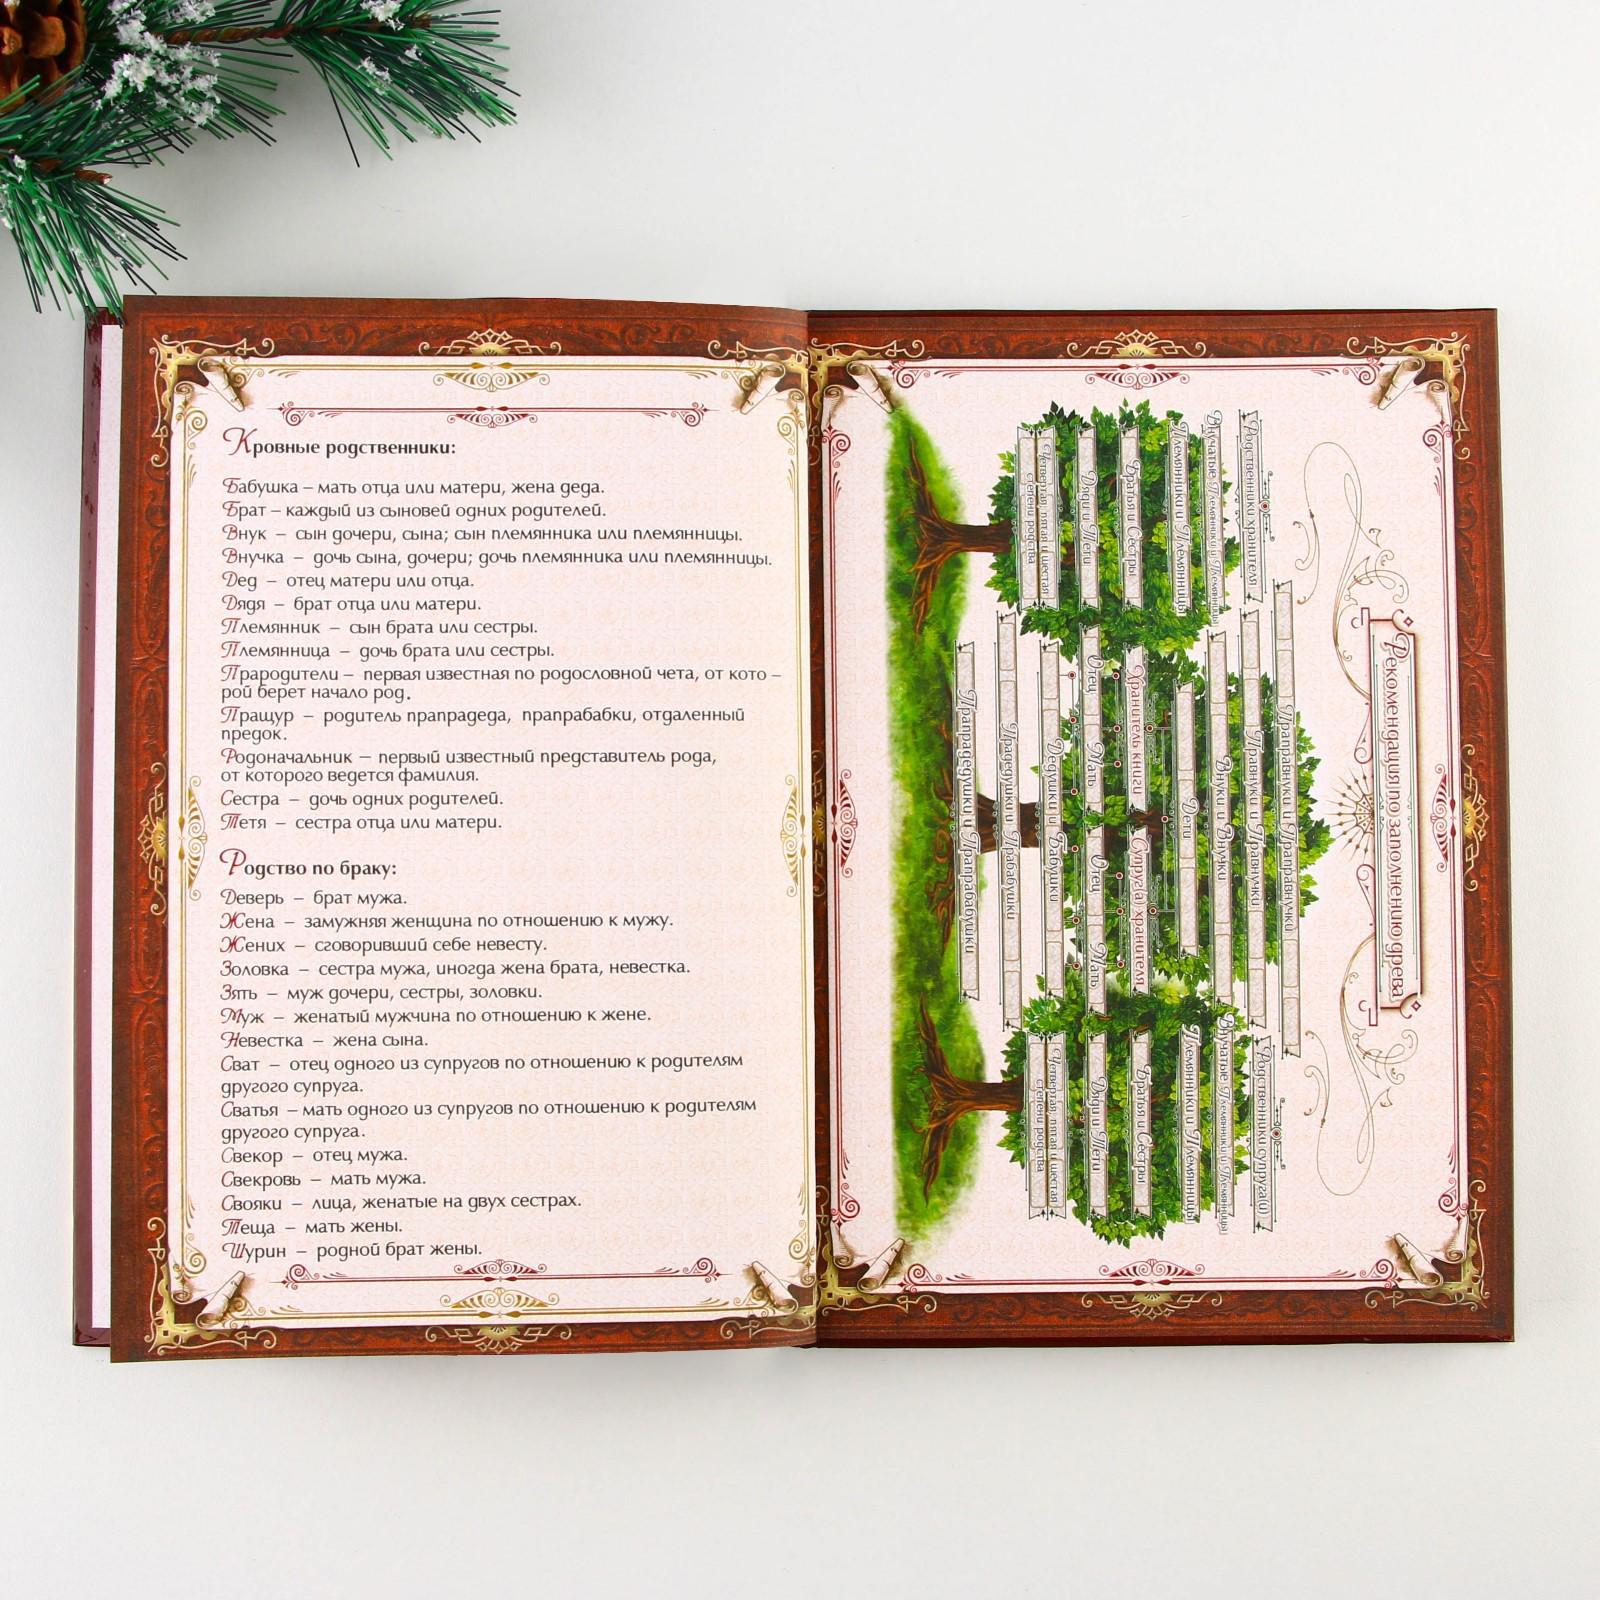 Кровные родственники:
Бабушка – мать отца или матери, жена деда.
Брат – каждый из сыновей одних родителей.
Внук – сын дочери, сына; сын племянника или племянницы.
Внучка – дочь сына, дочери; дочь племянника или племянницы.
Дед – отец матери или отца.
Дядя – брат отца или матери.
Племянник – сын брата или сестры.
Племянница – дочь брата или сестры.
Прародители – первая известная по родословной чета, от кото –
рой берет начало род.
Пращур – родитель прапрадеда, прапрабабки, отдаленный
предок.
Родоначальник – первый известный представитель рода,
от которого ведется фамилия.
Сестра – дочь одних родителей.
Тетя – сестра отца или матери.
Родство по браку:
Деверь – брат мужа.
Жена – замужняя женщина по отношению к мужу.
Жених – сговоривший себе невесту.
Золовка – сестра мужа, иногда жена брата, невестка.
Зять – муж дочери, сестры, золовки.
Муж – женатый мужчина по отношению к жене.
Невестка – жена сына.
Сват – отец одного из супругов по отношению к родителям
другого супруга.
Сватья – мать одного из супругов по отношению к родителям
другого супруга.
Свекор – отец мужа.
Свекровь – мать мужа.
Свояки – лица, женатые на двух сестрах.
Теща – мать жены.
Шурин – родной брат жены.
Рекомендация по заполнению древа
Праправнуки и Праправнучки
Правнуки и Правнучки
Внуки и Внучки
Дети
Хранитель книги
Супруг(а) хранителя
Отец
Мать
Отец
Мать
Дедушки и Бабушки
Прадедушки и Прабабушки
Прапрадедушки и Прапрабабушки
Родственники хранителя
Внучатые Племянники и Племянницы
Племянники и Племянницы
Братья и Сестры
Дяди и Тети
Четвертая, пятая и шестая
степени родства
Родственники супруга(и)
Внучатые Племянники и Племянницы
Племянники и Племянницы
Братья и Сестры
Дяди и Тети
Четвертая, пятая и шестая
степени родства